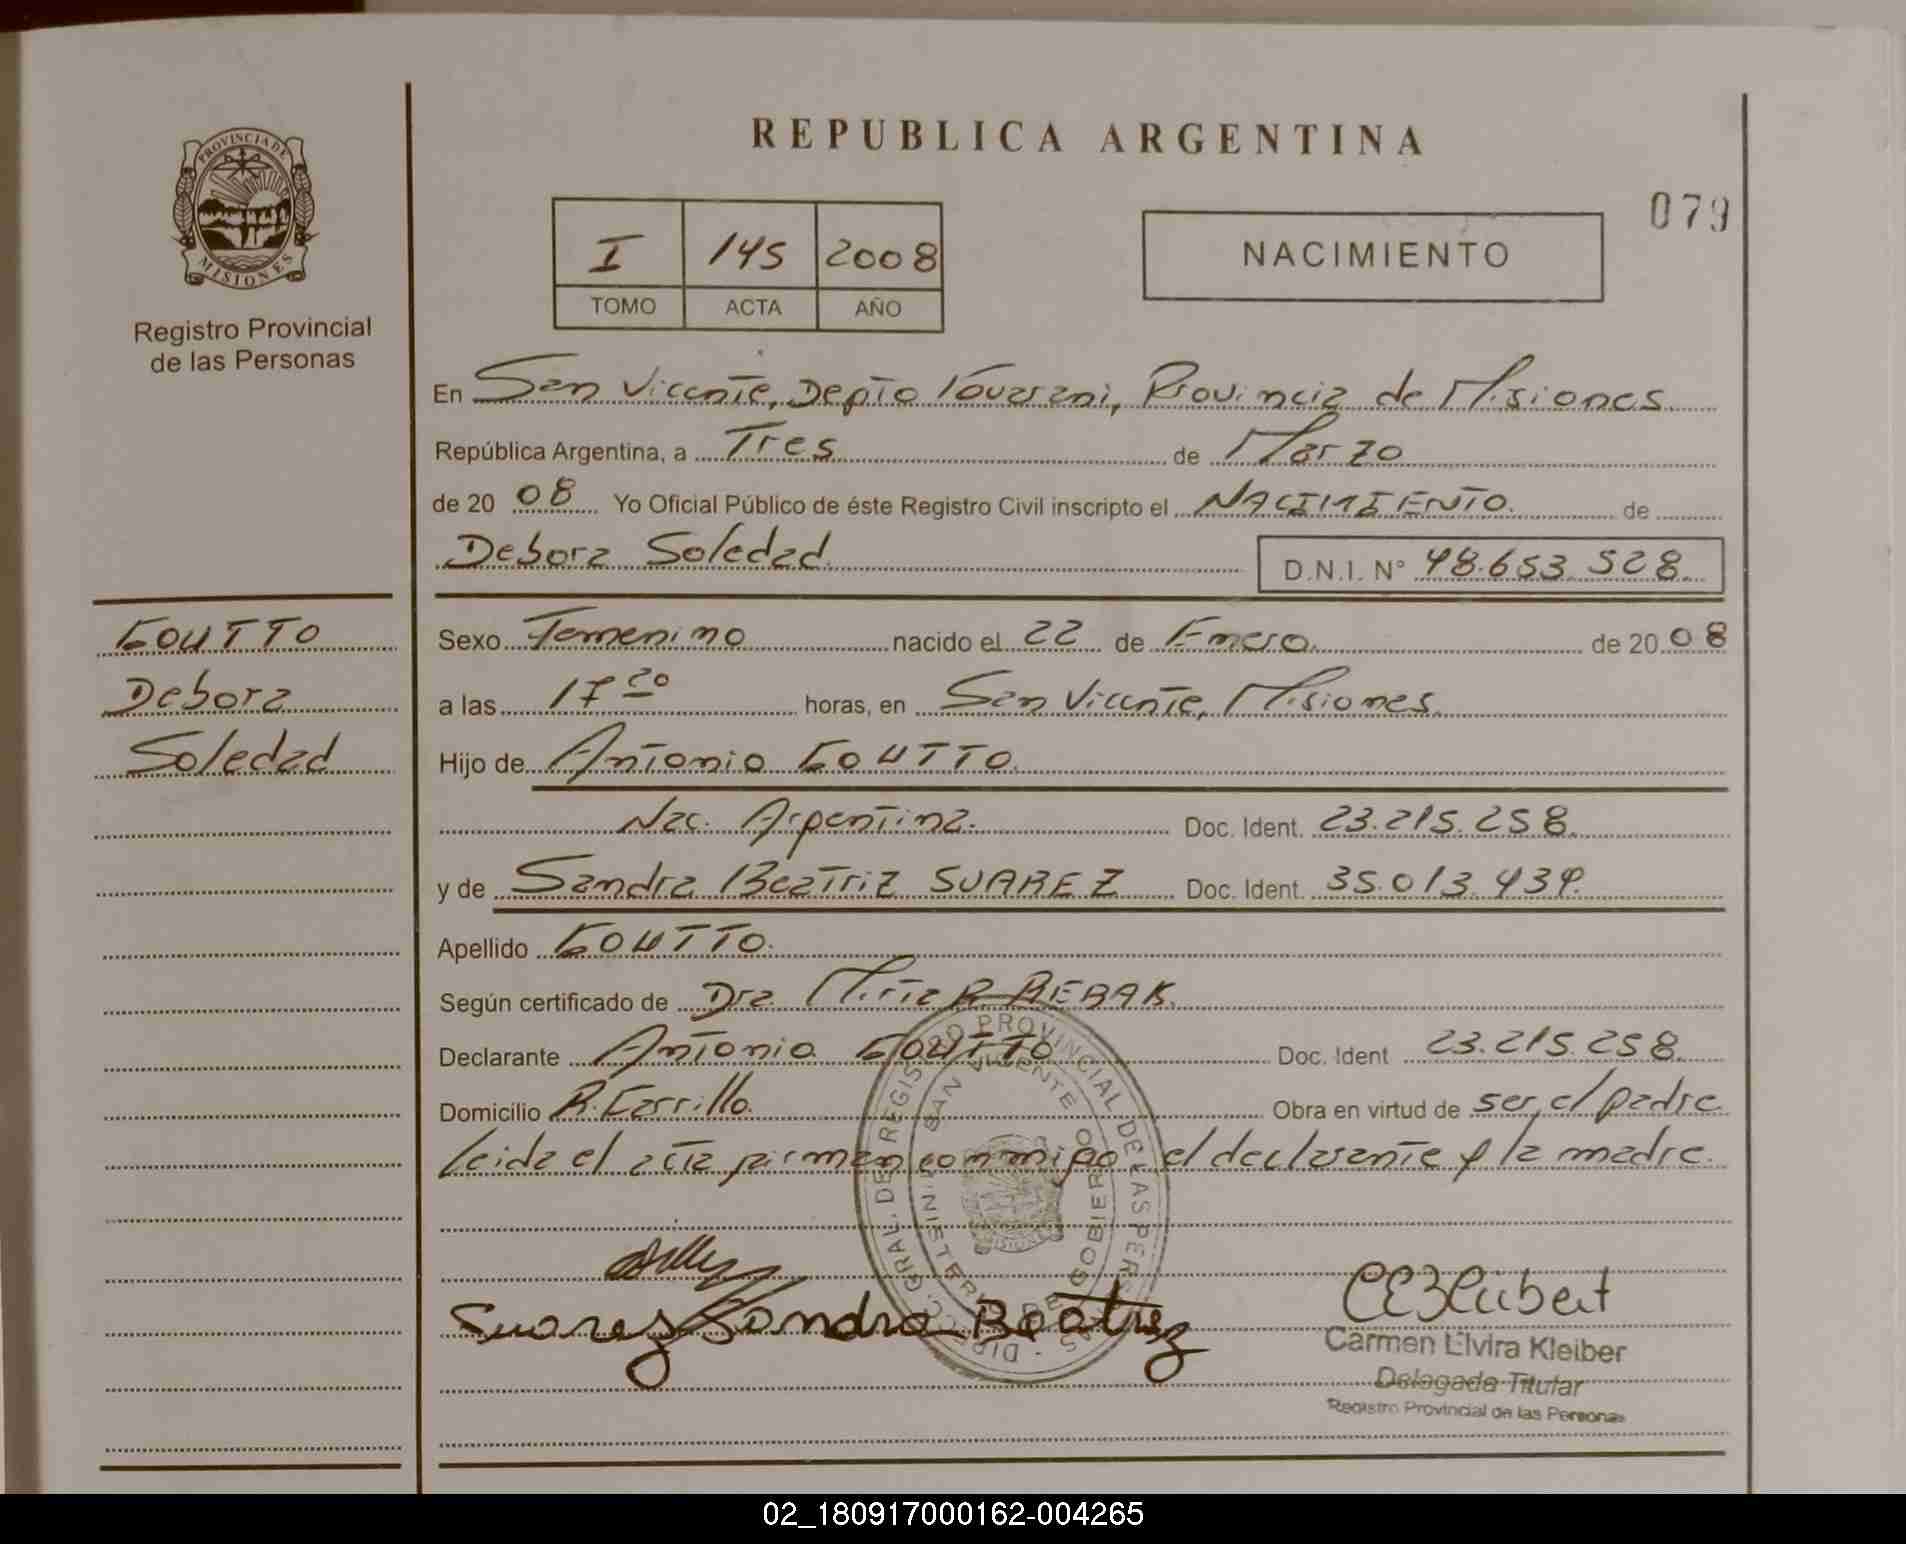 REPUBLICA ARGENTINA
079
PROVINCIA DE
MISIONES
Registro Provincial
de las Personas
I 145 2008
TOMO ACTA AÑO
NACIMIENTO
En San Vicente, Depto Guarani, Provincia de Misiones
República Argentina, a Tres de Marzo
de 2008 Yo Oficial Público de éste Registro Civil inscripto el NACIMIENTO de
Debora Soledad D.N.I. N° 48.653.528
GOUTTO
Debora
Soledad
Sexo Femenino nacido el 22 de Enero de 2008
a las 17 20 horas, en San Vicente, Misiones
Hijo de Antonio GOUTTO
Nac. Argentina. Doc. Ident. 23.215.258
y de Sandra Beatriz SUAREZ Doc. Ident. 35.013.439
Apellido GOUTTO.
Según certificado de Dra. Mirta R. REBAK
Declarante Antonio GOUTTO Doc. Ident 23.215.258
Domicilio R. Carrillo Obra en virtud de ser el padre
Leida el acta firman conmigo el declarante y la madre.
DIRECC. GRAL. DE REGISTRO PROVINCIAL DE LAS PERSONAS
SAN VICENTE
MINISTERIO DE GOBIERNO
Suarez Sandra Beatriz
Carmen Elvira Kleiber
Delegada Titular
Registro Provincial de las Personas
02_180917000162-004265